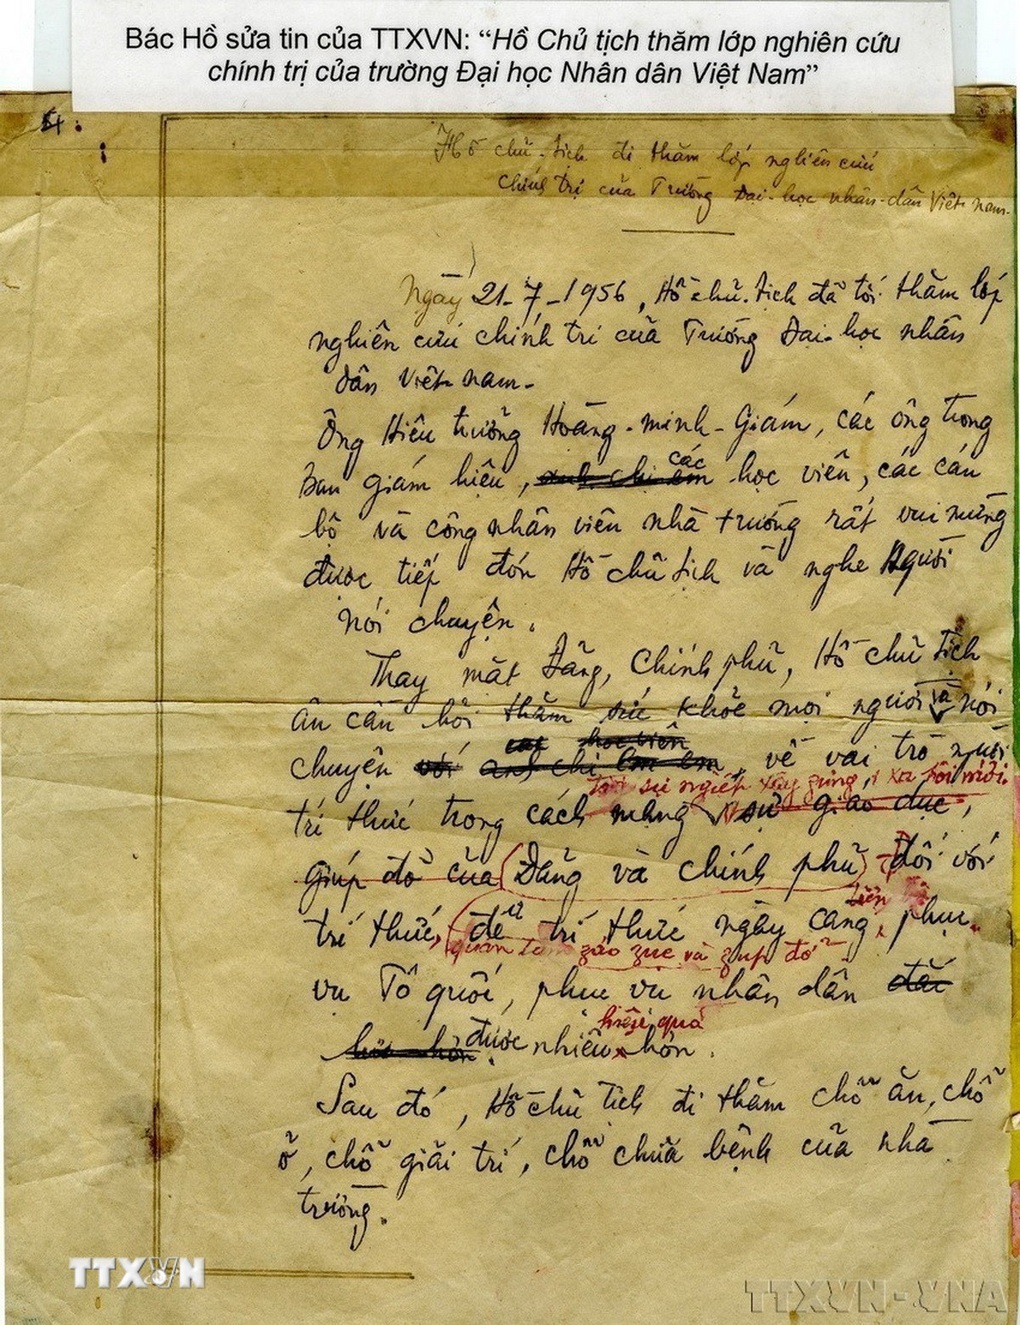 Bác Hồ sửa tin của TTXVN: “Hồ Chủ tịch thăm lớp nghiên cứu
chính trị của trường Đại học Nhân dân Việt Nam”
Hồ chủ-tịch đi thăm lớp nghiên cứu
chính trị của Trường Đại-học nhân-dân Việt-nam.
Ngày 21-7-1956, Hồ chủ-tịch đã tới thăm lớp
nghiên cứu chính trị của Trường Đại-học nhân
dân Việt-nam.
Ông Hiệu trưởng Hoàng-minh-Giám, các ông trong
Ban giám hiệu, anh chị em các học viên, các cán
bộ và công nhân viên nhà trường rất vui mừng
được tiếp đón Hồ chủ tịch và nghe Người
nói chuyện.
Thay mặt Đảng, Chính phủ, Hồ chủ tịch
ân cần hỏi thăm sức khỏe mọi người và nói
các học viên
chuyện với anh chị em, về vai trò người
tới sự nghiệp xây dựng xã hội mới
trí thức trong cách mạng sự giáo dục,
giúp đỡ của Đảng và chính phủ đối với
trí thức, để trí thức ngày càng tiến bộ, phục
quan tâm záo zục và zúp đỡ
vụ Tổ quốc, phục vụ nhân dân đắc
hiệu quả
lực hơn. được nhiều hơn.
Sau đó, Hồ Chủ Tịch đi thăm chỗ ăn, chỗ
ở, chỗ giải trí, chỗ chữa bệnh của nhà
trường.
TTXVN
TTXVN-VNA